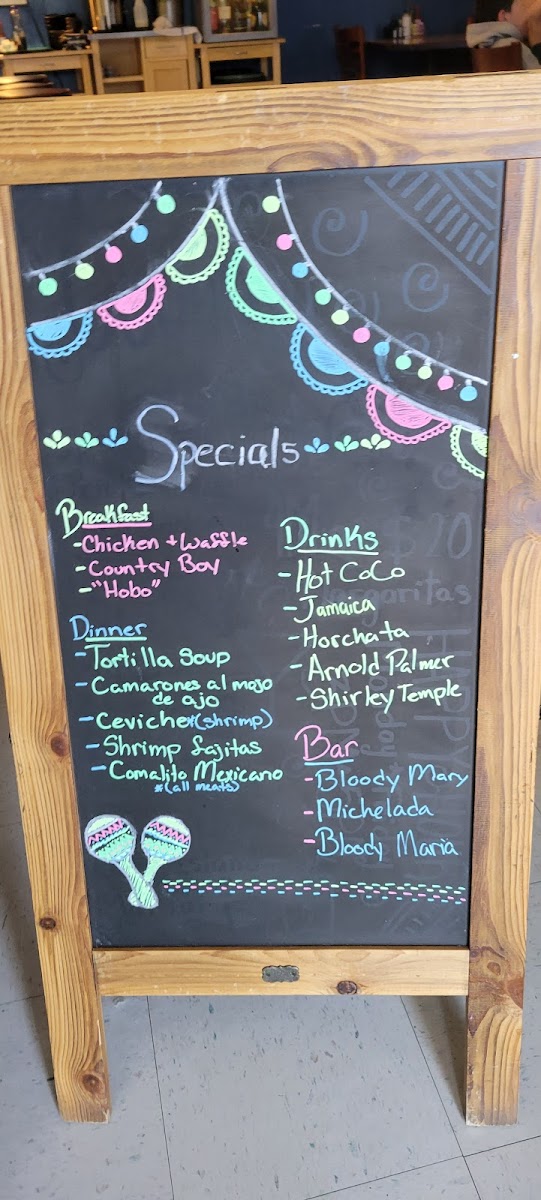 Specials
Breakfast
- Chicken + Waffle
- Country Boy
- "Hobo"
Dinner
- Tortilla Soup
- Camarones al mojo
de ajo
- Ceviche *(shrimp)
- Shrimp fajitas
- Comalito Mexicano
*(all meats)
Drinks
- Hot CoCo
- Jamaica
- Horchata
- Arnold Palmer
- Shirley Temple
Bar
- Bloody Mary
- Michelada
- Bloody Maria
margaritas